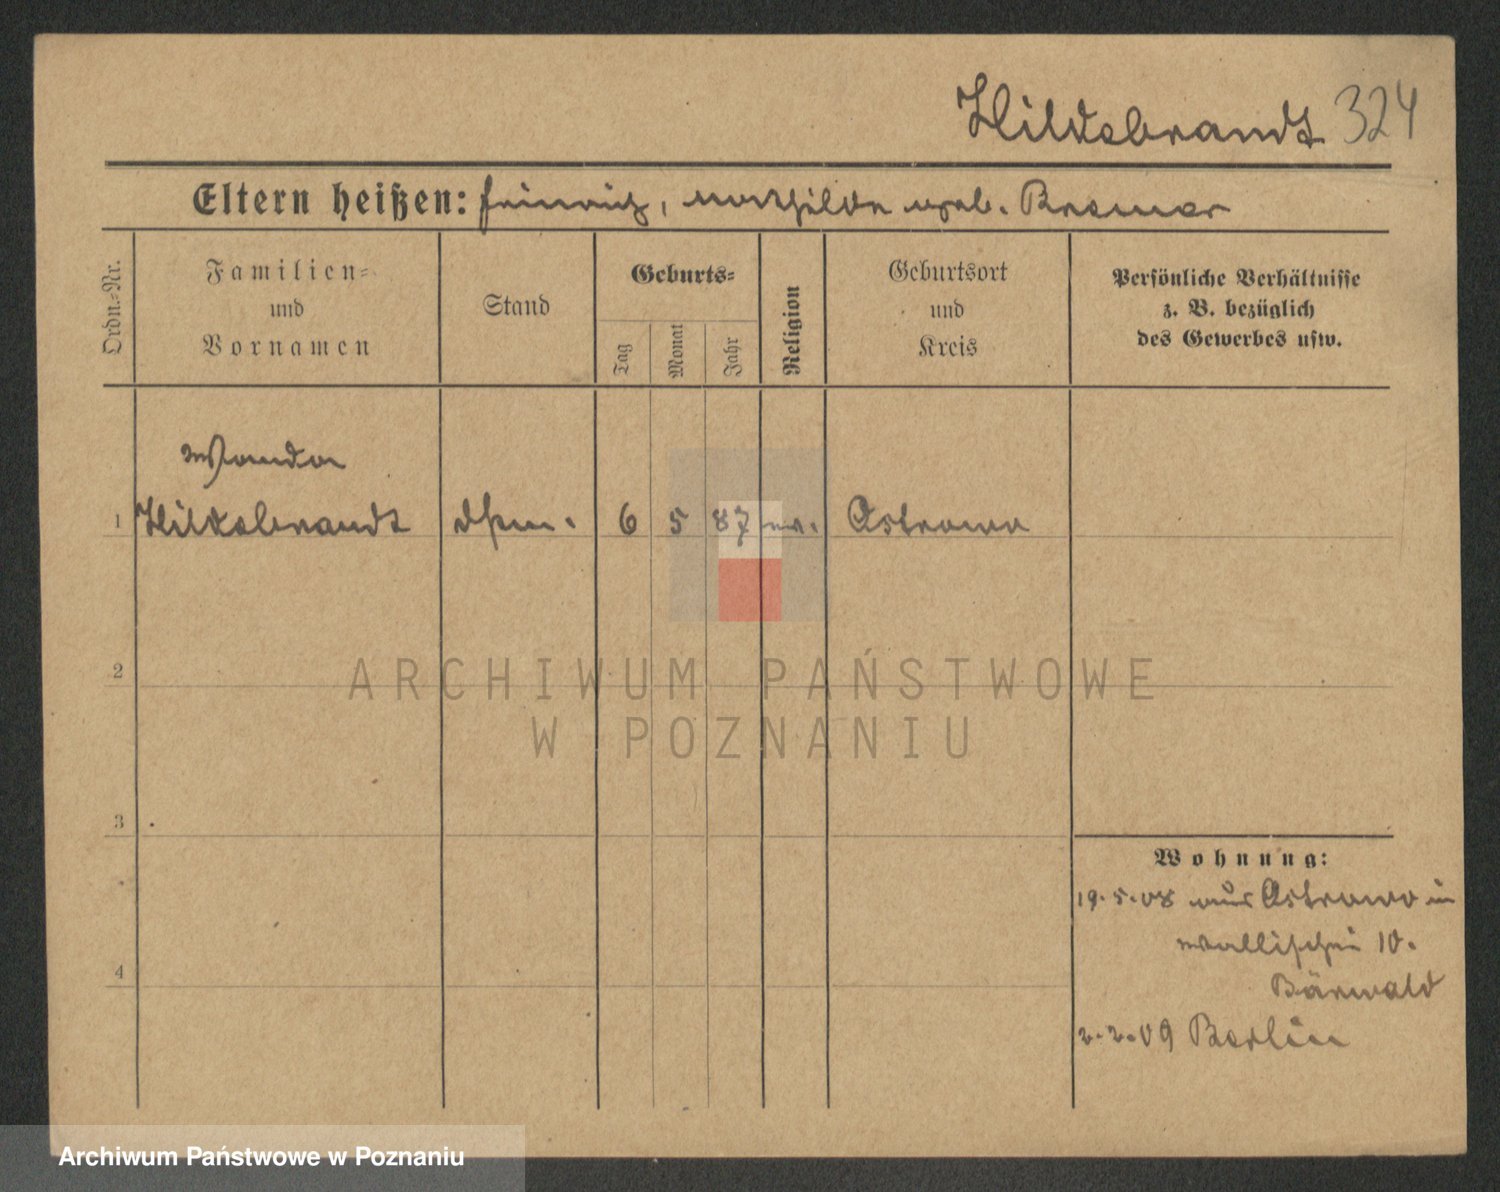 Hildebrandt 324
Eltern heißen: Heinrich, Mathilde geb. Bremer
Ordn.-Nr.
Familien-
und
Vornamen
Stand
Geburts-
Tag
Monat
Jahr
Religion
Geburtsort
und
Kreis
Persönliche Verhältnisse
z. B. bezüglich
des Gewerbes usw.
Wanda
1 Hildebrandt 6 5 87 ev. Ostrowo
2
3
4
Wohnung:
19.5.08 aus Ostrowo in
Wallischei 10.
Bärwald
2.2.09 Berlin
ARCHIWUM PAŃSTWOWE
W POZNANIU
Archiwum Państwowe w Poznaniu